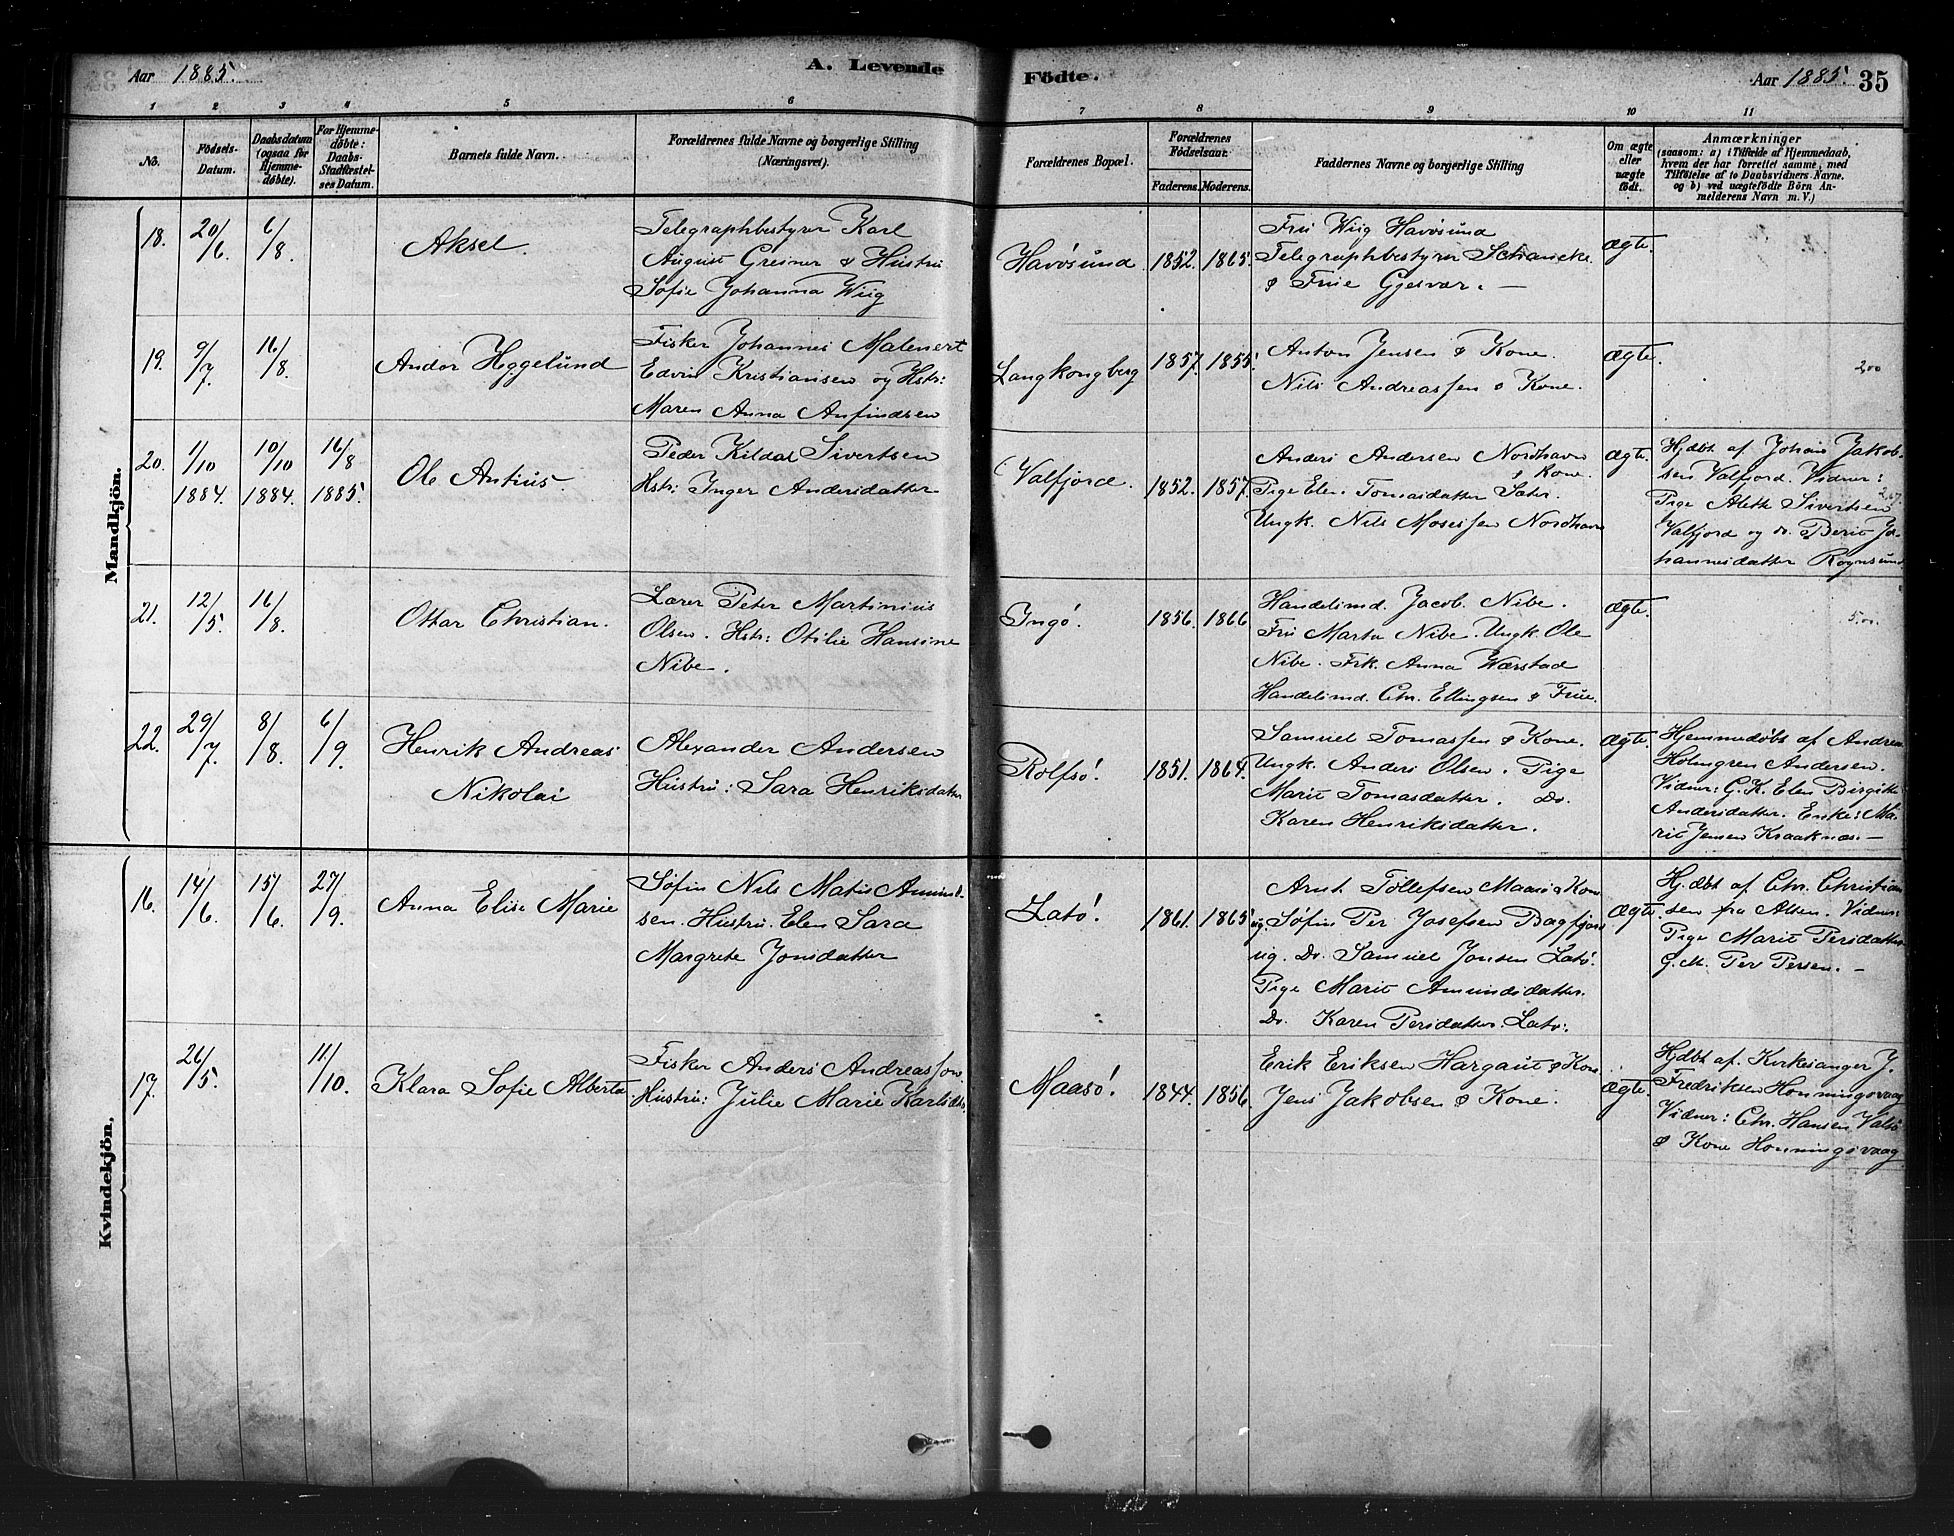 Aar 1885.
A. Levende
Födte.
Aar 1885. 35
1 2 3 4 5 6 7 8 9 10 11
No.
Födsels-
Datum.
Daabsdatum
(ogsaa for
Hjemme-
döbte).
For Hjemme-
döbte:
Daabs-
Stadfæstel-
ses Datum.
Barnets fulde Navn.
Forældrenes fulde Navne og borgerlige Stilling
(Næringsvei).
Forældrenes Bopæl.
Forældrenes
Födselsaar.
Faderens. Moderens.
Faddernes Navne og borgerlige Stilling
Om ægte
eller
uægte
födt.
Anmærkninger
(saasom: a) i Tilfælde af Hjemmedaab,
hvem der har forrettet samme, med
Tilföielse af to Daabsvidners Navne.
og b) ved uægtefödte Börn An-
melderens Navn m. V.)
Mandkjön.
18. 20/6. 6/8.
Aksel.
Telegraphbestyrer Karl
August Greiner & Hustru
Sofie Johanna Wiig
Havösund 1852. 1865.
Fru Wiig Havösund
Telegraphbestyrer Schancke
& Frue Gjesvær. —
Ægte.
19. 9/7. 16/8.
Andor Heggelund
Fisker Johannes Malenert
Edvin Kristiansen og Hstr:
Maren Anna Anfindsen
Langkongberg 1857. 1855.
Anton Jensen & Kone.
Nils Andreassen & Kone.
Ægte.
2,00
20. 1/10 1884. 10/10 1884. 16/8 1885.
Ole Antius.
Peder Kildal Sivertsen
Hstr: Inger Andersdatter
Valfjord. 1852. 1857.
Anders Andersen Nordhavn
& Kone.
Pige Elen Tomasdatter Sater.
Ungk. Nils Mosessen Nordhavn
Ægte.
Hjdbt af Johans Jakob-
sen Valfjord. Vidner:
Pige Aleth Sivertsen
Valfjord og do. Berit Jo-
hannesdatter Rognsund
21. 12/5. 16/8.
Ottar Christian.
Lærer Peter Martinius
Olsen. Hstr: Otilie Hansine
Nibe.
Ingö. 1856. 1866
Handelsmd. Jacob Nibe.
Fru Marta Nibe. Ungk. Ole
Nibe. Frk. Anna Wærstad
Handelsmd. Chr. Ellingsen & Frue.
Ægte.
5,00.
22. 29/7. 8/8. 6/9.
Henrik Andreas
Nikolai
Alexander Andersen
Hustru: Sara Henriksdatter
Rolfsö. 1851. 1864.
Samuel Tomassen & Kone.
Ungk. Anders Olsen. Pige
Marit Tomasdatter. Do.
Karen Henriksdatter.
Ægte.
Hjemmedöbt af Andreas
Holmgren Andersen.
Vidner: G. K. Elen Birgitte
Andersdatter. Enke: Ma-
rit Jensen Kraaknæs. —
Kvindekjön.
16. 14/6. 15/6. 27/9.
Anna Elise Marie
Söfin Nils Matis Amund-
sen. Hustru. Elen Sara
Margrete Jonsdatter
Latö. 1861. 1865
Arnt Tollefsen Maasö & Kone
ug. Söfin Per Josefsen Bagfjord
ug. Do. Samuel Jonsen Latö.
Pige Marit Amundsdatter.
Do. Karen Persdatter. Latö.
Ægte.
Hjdbt af Chr. Christian-
sen fra Alten. Vidner:
Pige Marit Persdatter
G. M. Per Persen. —
17. 26/5. 11/10.
Klara Sofie Alberta.
Fisker Anders Andreassen.
Hustru: Julie Marie Karlsdtr.
Maasö. 1844. 1856.
Erik Eriksen Hargaut & Kone
Jens Jakobsen & Kone.
Ægte.
Hjdbt af Kirkesanger J.
Fredriksen Honningsvaag
Vidner: Chr. Hansen Valsö
& Kone Honningsvaag